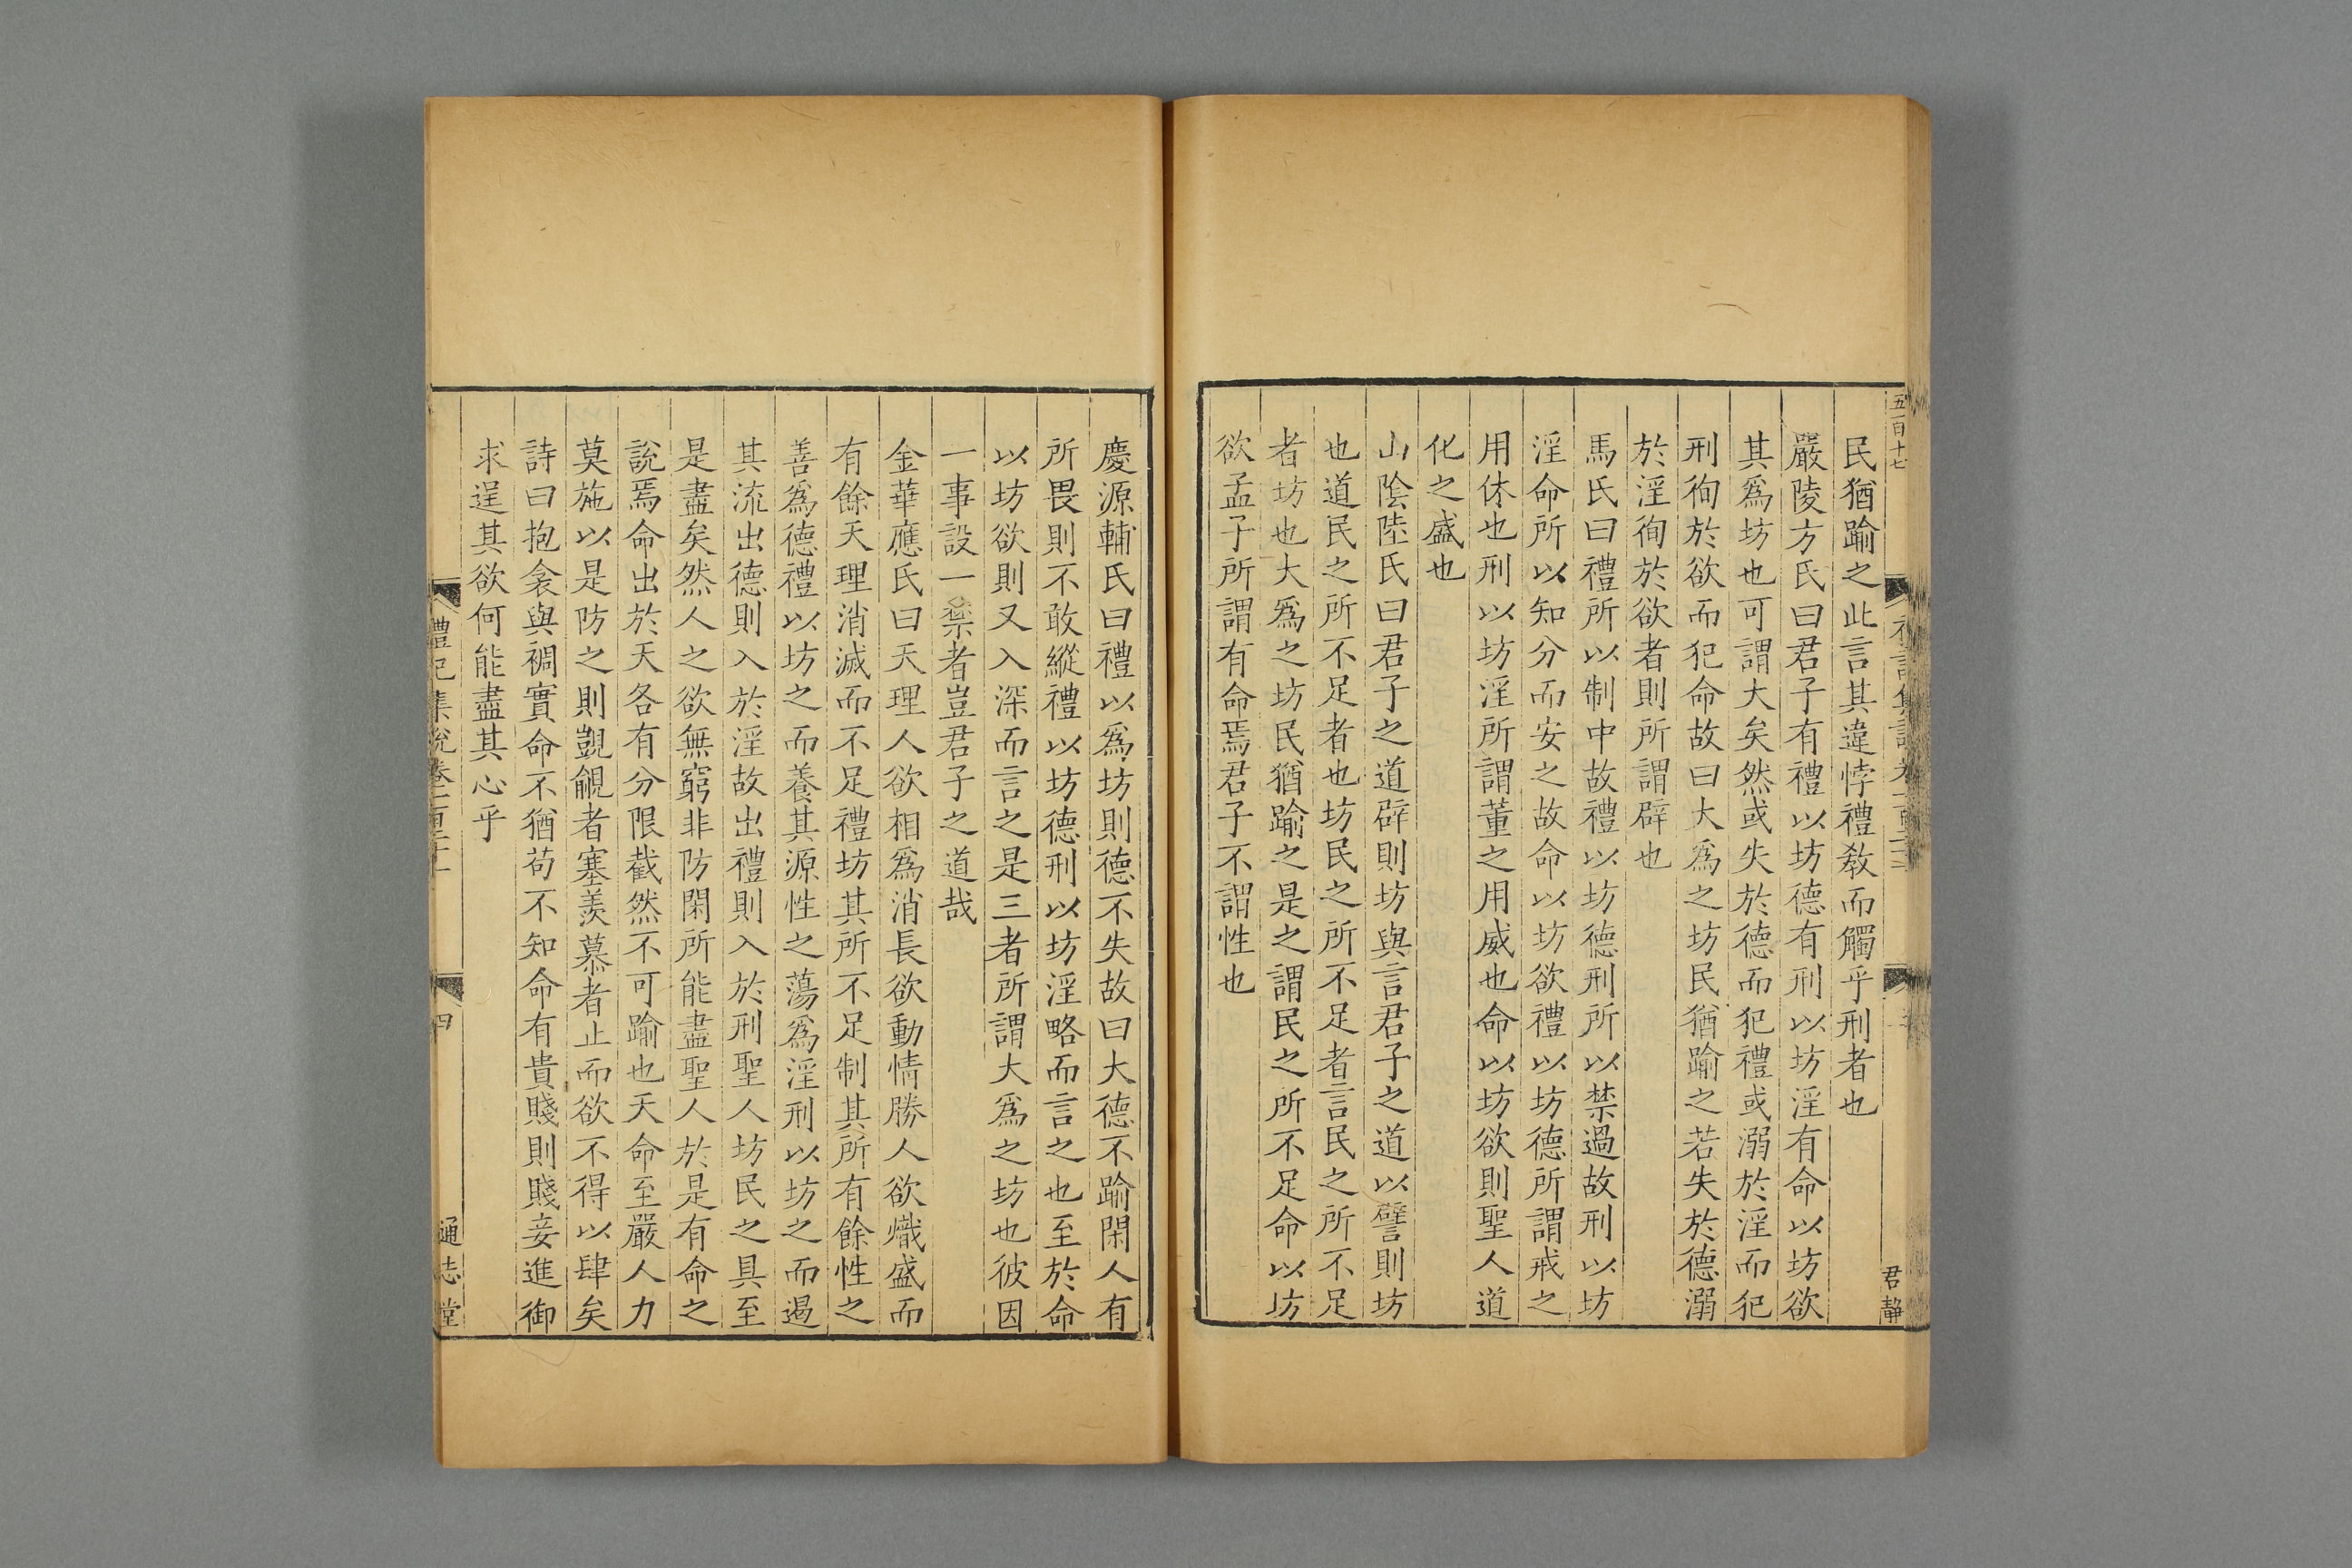 五百十七
君靜
民猶踰之此言其違悖禮教而觸乎刑者也
嚴陵方氏曰君子有禮以坊德有刑以坊淫有命以坊欲
其爲坊也可謂大矣然或失於德而犯禮或溺於淫而犯
刑徇於欲而犯命故曰大爲之坊民猶踰之若失於德溺
於淫徇於欲者則所謂辟也
馬氏曰禮所以制中故禮以坊德刑所以禁過故刑以坊
淫命所以知分而安之故命以坊欲禮以坊德所謂戒之
用休也刑以坊淫所謂董之用威也命以坊欲則聖人道
化之盛也
山陰陸氏曰君子之道辟則坊與言君子之道以譬則坊
也道民之所不足者也坊民之所不足者言民之所不足
者坊也大爲之坊民猶踰之是之謂民之所不足命以坊
欲孟子所謂有命焉君子不謂性也
慶源輔氏曰禮以爲坊則德不失故曰大德不踰閑人有
所畏則不敢縱禮以坊德刑以坊淫略而言之也至於命
以坊欲則又入深而言之是三者所謂大爲之坊也彼因
一事設一禁者豈君子之道哉
金華應氏曰天理人欲相爲消長欲動情勝人欲熾盛而
有餘天理消滅而不足禮坊其所不足制其所有餘性之
善爲德禮以坊之而養其源性之蕩爲淫刑以坊之而遏
其流出德則入於淫故出禮則入於刑聖人坊民之具至
是盡矣然人之欲無窮非防閑所能盡聖人於是有命之
說焉命出於天各有分限截然不可踰也天命至嚴人力
莫施以是防之則覬覦者塞羨慕者止而欲不得以肆矣
詩曰抱衾與裯實命不猶苟不知命有貴賤則賤妾進御
求逞其欲何能盡其心乎
禮記集說卷一百二十
四
通志堂